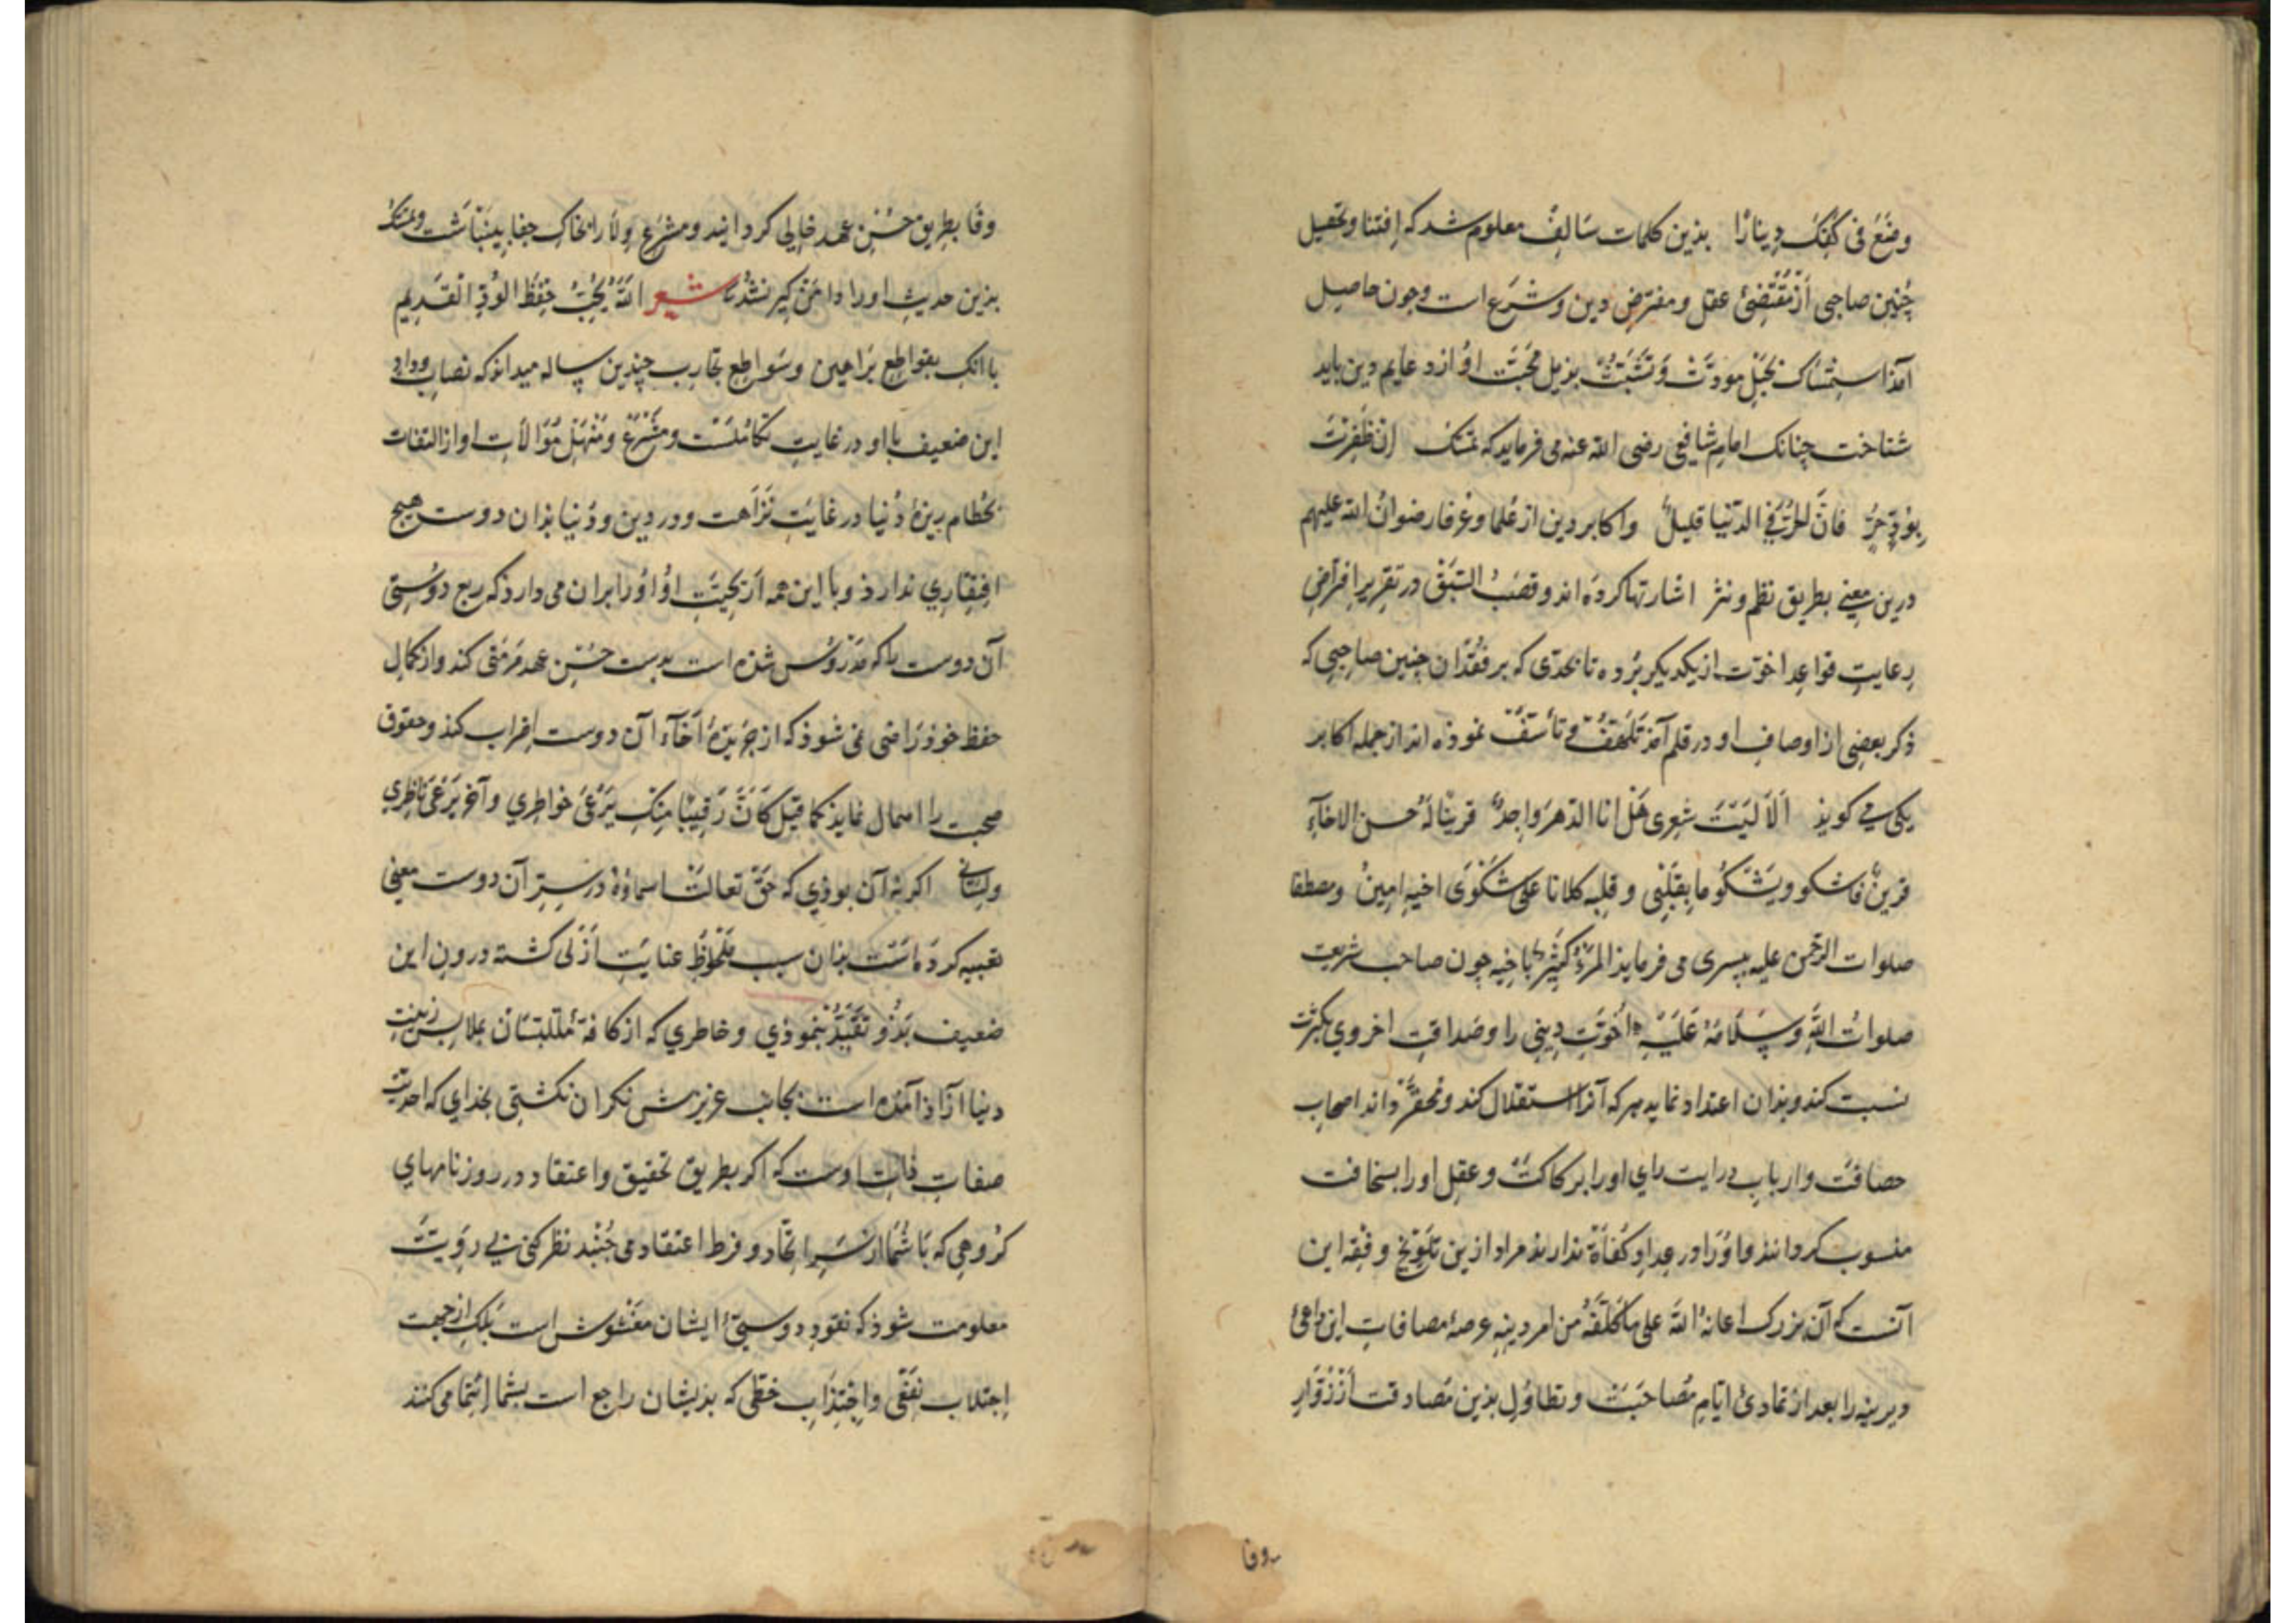 وضَعَ فی کفِّکَ دِینارًا بذین کلمات سَالِف معلوم شد که اِقتنا و تحصیل
چُنین صاحبی اَزْ مُقْتَضیٔ عقل و مفترض دین و شرَع است و چون حاصِل
آمذ استِمْسَاک بحَبْلِ مودّتْ وَ تَشَبُّثْ بذیل مُحَبَّت اوُ از دعایم دین باید
شناخت چنانک امام شافعی رضی الله عنه می فرماید که تمسّک اِنْ ظَفِرْتَ
بِوُدِّ حُرٍّ فَانَّ الحُرَّ فی الدّنیا قلیلُ و اکابر دین از عُلما و عُرفا رضوانُ الله علیهم
درین مَعِنی بطریق نظم و نثر اشارتها کردَه اند و قصَبُ السّبَقْ در تقریرِ افتراضِ
رِعایتِ قواعِد اخوّت از یکدیکر بُرده تا بحدّی که بر فقُدان چنین صاحِبی که
ذکر بعضِی از اوصافِ او در قلم آمذ تَلَهّفْ و تأسّفْ نموذه اند از جمله اکابر
یکی می کویذ اَلَا لَیْتَ شِعِری هَلْ انا الدّهرَ واجِدٌ قریناً لَهُ حُسن الاخآءِ
قرینٌ فاشکو و یَشْکُو ما بِقلبِی و قلبِه کلانا علی شکْوَی اخیهِ امِینُ و مصطفا
صلوات الرّحمن علیه بیسری می فرمایذ المرْءُ کثِیرٌ باخیه چون صاحب شریعت
صلواتُ اللهِ وَ سَلَامُهُ عَلَیْهِ اُخُوّتِ دِینی را و صَداقتِ اخروی بکثرت
نسبت کند و بذان اعتداد نماید هر که آنرا استقلال کند و محقّر داند اصحاب
حصافتْ و اربابِ درایت رای او را برکاکتْ و عقل او را بسخافت
منسوب کردانند و اوُرا در عِدادِ کفُاة ندارند مراد ازین تلَویْح و فِقه این
آنست که آن بزرک اعانهُ اللهُ علی ما کُلّفَهُ من امر دینهِ عرصۀ مصافاتِ این داعیٔ
دیرینه را بعد از تمادیٔ ایّامِ مُصاحَبَتْ و تطاوُلِ بذین مُصادقت اَزْ زُوّارِ
وفا
وفَا بطریق حُسْنِ عهد خالِی کردانید و مشرَع وِلَا را بخاکِ جفا بینَباشت و تمسّکْ
بذین حدیث او را دامَن کیر نشذ شعر اللهُ یُحِبُّ حِفظَ الوُدِّ القَدِیم
با آنک بقواطِع برَاهین و سَواطِع تجارب چندین ساله میداند که نصابِ وداد
این ضعیف با او در غایتِ تکامُلسْت و مشَرَع و مَنْهَلِ مُوَالاتِ او از التفات
بحُطام ریزۀ دُنیا در غایَتِ نَزَاهت و در دین و دُنیا بذان دوست هیچ
افتِقاری ندارذ و با این همه اَرْیَحِیّتِ اوُ اوُرا بران می دارد که ربع دوُستِی
آن دوست را که مَدْروُس شذه است بدست حُسْنِ عهد مَرمّتی کند و از کمالِ
حفظ خوذ رَاضی نمی شوذ که از جریدۀ اخَآءِ آن دوست اِضراب کنذ و حقوق
صُحبت را اهمال نمایذ کما قیلَ کأَنَّ رَقیبًا مِنکَ یَرْعَی خواطِری و آخر یَرْعَی نَاظِری
ولِسَانی اکر نه آن بوذی که حَقّ تعالَتْ اسماؤهُ در سِرِّ آن دوست معنِی
تعبیه کردَه است بذان سبب مَلحُوظَ عنایَتِ اَزَلی کشته درونِ این
ضعیف بَدُو تقَیُّدْ ننموذی و خاطری که از کافۀ مُتَلَبّسَانْ بملابِس زینت
دنیا آزَاذ آمذه است بجانب عزیزش نکران نکشتی بخذای که احدیّتْ
صفاتِ ذاتِ اوست که اکر بطریق تحقیق و اعتقاد در روزنامهای
کرُوهِی که بَا شُمَا از سَرِ اتّحاد و فرط اعتقاد می جُنْبند نظر کنی بی رَوِیَّت
معلومت شوذ که نقودِ دوستیٔ ایشان مغَشوش است بَلک از جهت
اِجتلاب نَفْعی و اِجْتِذَابِ حَظّی که بذیشان راجع است بشما اِنْتِما می کنند